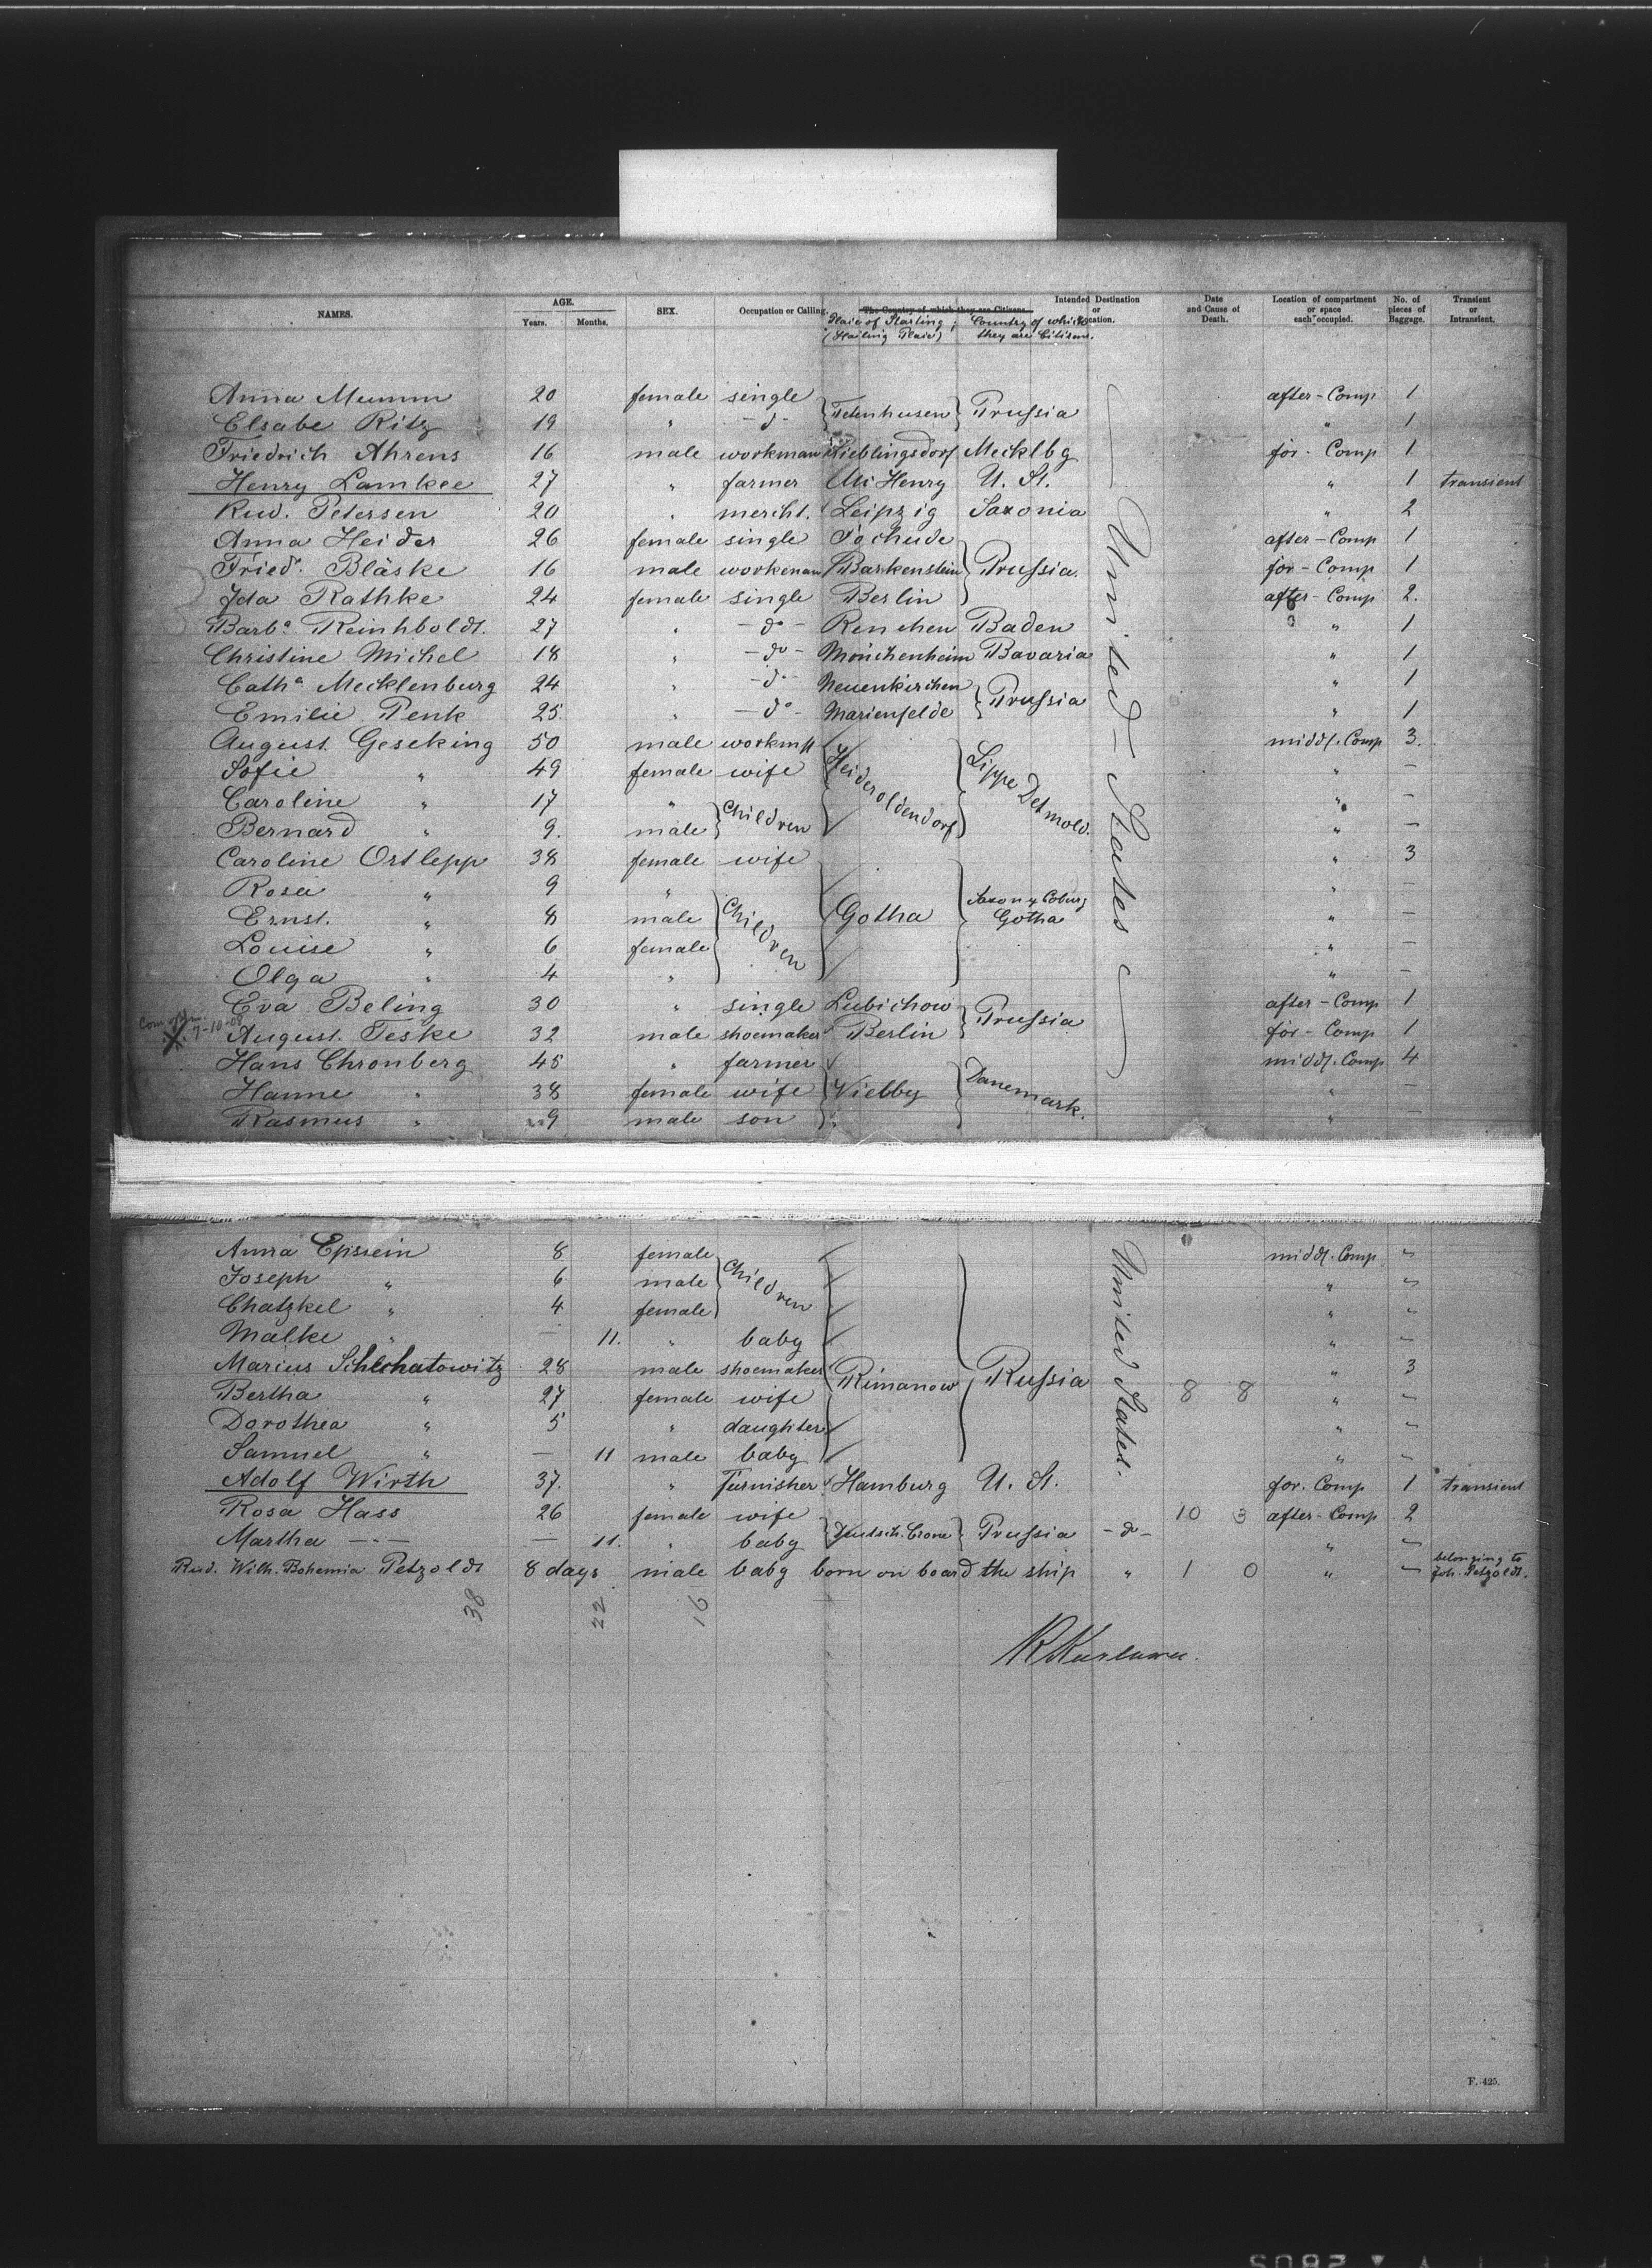 NAMES. AGE. Years. Months. SEX. Occupation or Calling. The Country of which they are Citizens. Intended Destination or Location. Date and Cause of Death. Location of compartment or space each occupied. No. of pieces of Baggage. Transient or Intransient.
Place of Starting; (Hailing Place) Country of which they are Citizens.
Anna Mumm 20 female single after-Comp 1
Elsabe Ritz 19 " -do- Tetenhusen Prussia " 1
Friedrich Ahrens 16 male workman Lieblingsdorf Mecklbg for-Comp 1
Henry Lamkee 27 " farmer Mc Henry U. St. " 1 transient
Rud. Petersen 20 " mercht. Leipzig Saxonia " 2
Anna Heider 26 female single after-Comp 1
Fried. Bläske 16 male workman Barkenstein Prussia for-Comp 1
Ida Rathke 24 female single Berlin after-Comp 2.
Barba Reinhboldt. 27 " -do- Renchen Baden " 1
Christine Michel 18 " -do- Mönchenheim Bavaria " 1
Catha Mecklenburg 24 " -do- Neuenkirchen " 1
Emilie Penk 25. " -do- Marienfelde Prussia " 1
August Geseking 50 male workm middl. Comp 3.
Sofie " 49 female wife Heideroldendorf Lippe Detmold. " —
Caroline " 17 " Children " —
Bernard " 9. male " —
Caroline Ortlepp 38 female wife " 3
Rosa " 9 " " —
Ernst. " 8 male Children Gotha Saxon & Coburg Gotha " —
Louise " 6 female " —
Olga " 4 " " —
Eva Beling 30 " single Lubichow after-Comp 1
X 7-10-08 August Teske 32 male shoemaker Berlin Prussia for-Comp 1
Hans Chronberg 45 " farmer middl. Comp 4
Hanne " 38 female wife Viebby Danemark. " —
Rasmus " 9 male son " —
United States
Anna Epstein 8 female middl. Comp "
Joseph " 6 male Children " "
Chatzkel " 4 female " "
Malke " — 11. " baby " "
Marius Schlchatowitz 28 male shoemaker Rimanow Russia " 3
Bertha " 27 female wife 8 8 " "
Dorothea " 5 " daughter " "
Samuel " — 11 male baby " "
United States.
Adolf Wirth 37. " Furnisher Hamburg U. St. for. Comp 1 transient
Rosa Hass 26 female wife 10 3 after-Comp 2
Martha — " — — 11. " baby Deutsch. Crone Prussia -do- " "
Rud. Wilh. Bohemia Petzoldt 8 days male baby born on board the ship " 1 0 " " belonging to Joh. Petzoldt.
38 22 16
F. 425.